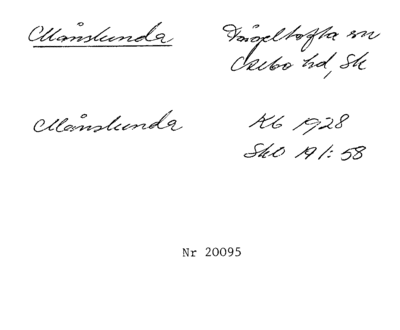 Månslunda Fågeltofta sn
Ozebo hd, Sk
Månslunda Kb 1928
SkO A 1: 58
Nr 20095